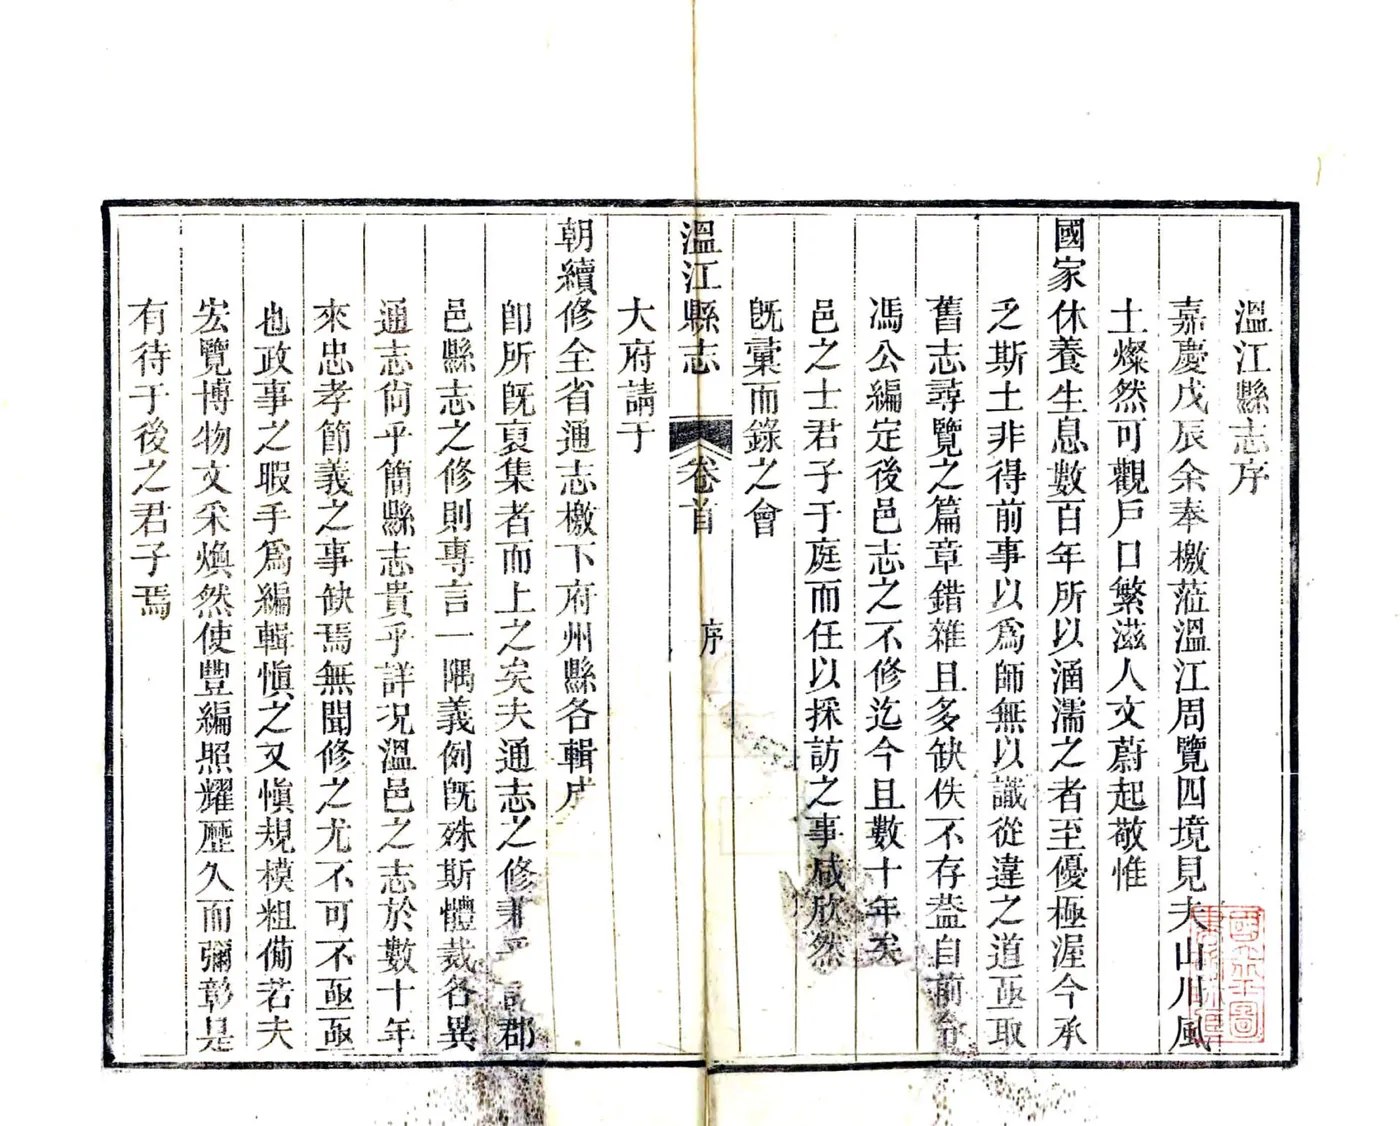 溫江縣志序
嘉慶戊辰余奉檄蒞溫江周覽四境見夫山川風
土燦然可觀戶口繁滋人文蔚起敬惟
國家休養生息數百年所以涵濡之者至優極渥今承
乏斯土非得前事以為師無以識從違之道亟取
舊志尋覽之篇章錯雜且多缺佚不存葢自前令
馮公編定後邑志之不修迄今且數十年矣
邑之士君子于庭而任以採訪之事咸欣然
既彙而錄之會
溫江縣志 卷首 序
大府請于
朝續修全省通志檄下府州縣各輯成
卽所既裒集者而上之矣夫通志之修兼乎 郡
邑縣志之修則專言一隅義例既殊斯體裁各異
通志尙乎簡縣志貴乎詳况溫邑之志於數十年
來忠孝節義之事缺焉無聞修之尤不可不亟亟
也政事之暇手為編輯慎之又慎規模粗備若夫
宏覽博物文采煥然使豐編照耀歷久而彌彰是
有待于後之君子焉